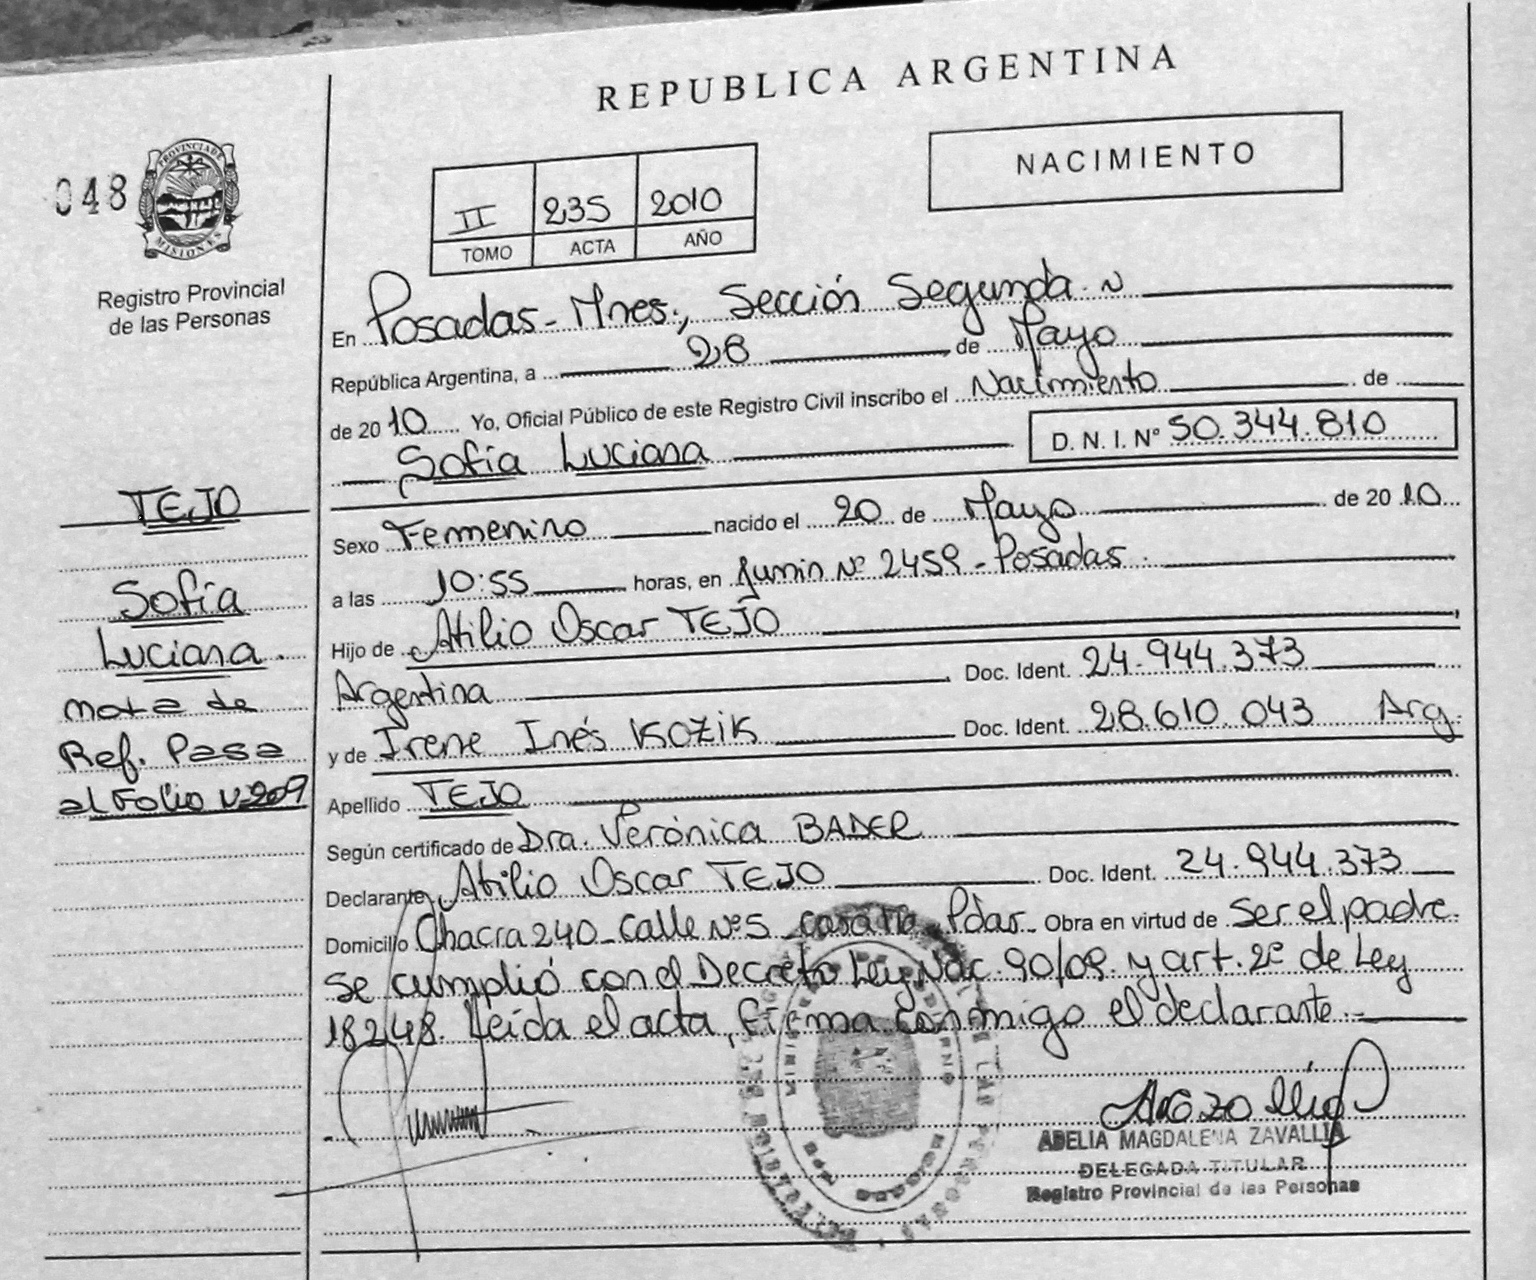 REPUBLICA ARGENTINA
NACIMIENTO
048
PROVINCIA DE
MISIONES
Registro Provincial
de las Personas
II 235 2010
TOMO ACTA AÑO
En Posadas - Mnes., Sección Segunda
República Argentina, a 28 de Mayo
de 2010 Yo, Oficial Público de este Registro Civil inscribo el Nacimiento de
Sofía Luciana D. N. I. Nº 50.344.810
TEJO
Sofía
Luciana.
Nota de
Ref. Pasa
al Folio Nº 209
Sexo Femenino nacido el 20 de Mayo de 2010
a las 10:55 horas, en Junin Nº 2459 - Posadas.
Hijo de Atilio Oscar TEJO
Argentina Doc. Ident. 24.944.373
y de Irene Inés KOZIK Doc. Ident. 28.610.043 Arg.
Apellido TEJO
Según certificado de Dra. Verónica BADER
Declarante Atilio Oscar TEJO Doc. Ident. 24.944.373
Domicilio Chacra 240 - Calle Nº 5 - casa Pdas. Obra en virtud de ser el padre
Se cumplió con el Decreto Ley Nac. 90/09 y art. 2º de Ley
18248. Leída el acta, firma conmigo el declarante.-
ADELIA MAGDALENA ZAVALLIA
DELEGADA TITULAR
Registro Provincial de las Personas